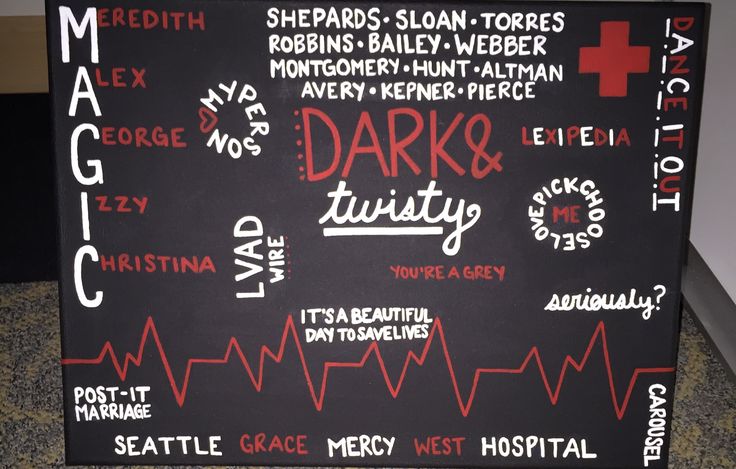 MEREDITH
ALEX
GEORGE
IZZY
CHRISTINA
MY PERSON
SHEPARDS · SLOAN · TORRES
ROBBINS · BAILEY · WEBBER
MONTGOMERY · HUNT · ALTMAN
AVERY · KEPNER · PIERCE
DANCE IT OUT
DARK &
twisty
LEXIPEDIA
PICK CHOOSE LOVE
ME
LVAD
WIRE
YOU'RE A GREY
seriously?
IT'S A BEAUTIFUL
DAY TO SAVE LIVES
POST-IT
MARRIAGE
CAROUSEL
SEATTLE GRACE MERCY WEST HOSPITAL